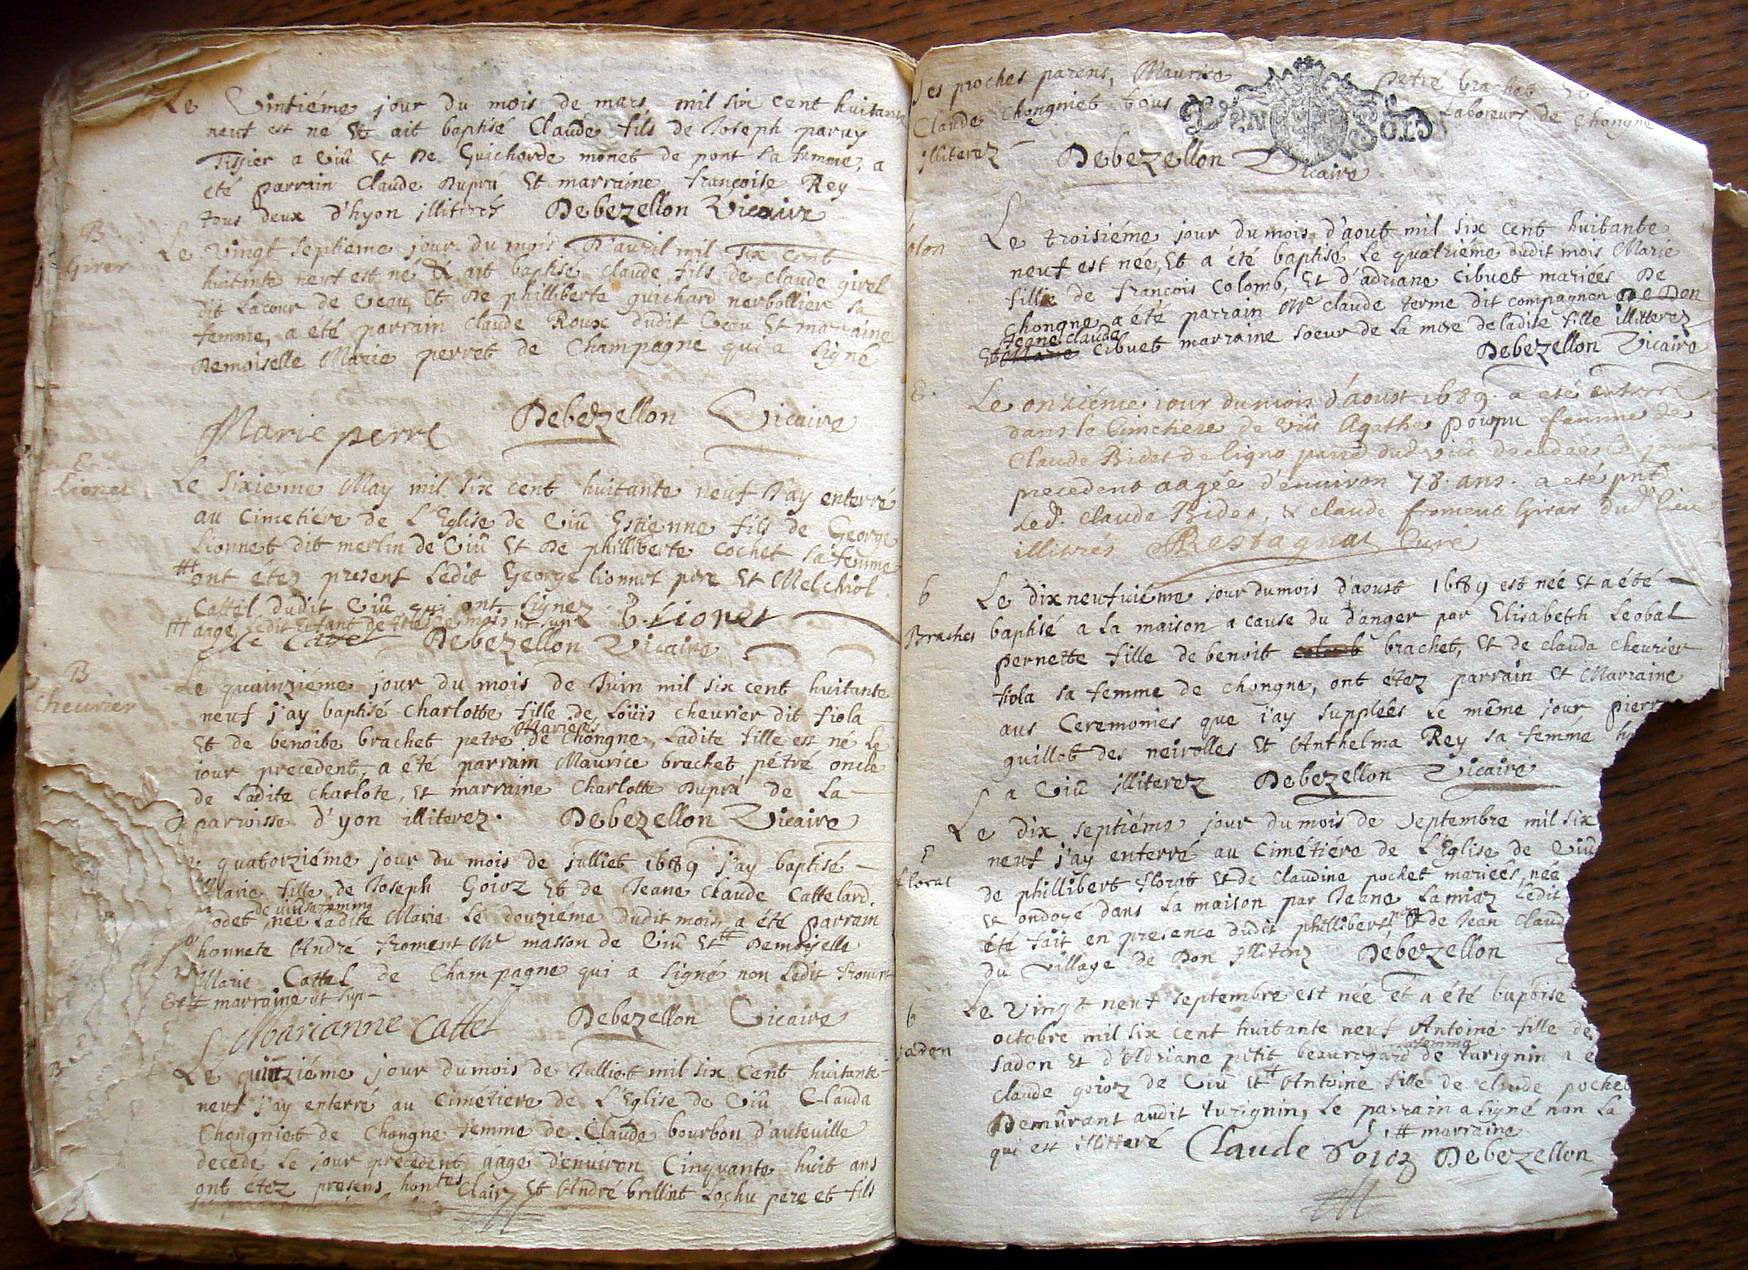 Le Vintiéme jour du mois de mars mil six cent huitante
neuf est né Et ait baptisé Claude fils de Joseph paray
Tissier a Viû Et De Guicharde monet de pont sa femme, a
été parrain Claude Dupru Et marraine françoise Rey
tous deux d'hyon illiterés Debezellon Vicaire
B
Girer
Le vingt septieme jour du mois D'avril mil six cent
huitante neuf est né Et ait baptisé claude fils de claude girel
dit Lacour de Ceau, Et De philliberte guichard nerbollier sa
femme, a été parrain Claude Roux dudit Ceau Et marraine
Demoiselle Marie perret de Champagne qui a Signé
Marie perre Debezellon Vicaire
E
Lionet
Le sixieme May mil six cent huitante neuf J'ay enterré
au Cimetiére de L'Eglise de Viû Estienne fils de George
Lionnet dit merlin de Viû Et De philliberte Cochet sa femme
ont étez present Ledit George lionnet pere Et Melchiol
Cattel dudit Viû qui ont signez G Lionet
aagé Ledit Enfant de mois ut sup
Debezellon Vicaire
B
Cheurier
Le quainzieme jour du mois de Juin mil six cent huitante
neuf j'ay baptisé Charlotte fille de Loüis cheurier dit fiola
Mariées
Et de benoite brachet petre de Chongne, Ladite fille est né Le
jour precedent, a été parrain Maurice brachet petré oncle
de Ladite charlote, et marraine Charlotte Dupré de La
parroisse d'yon illiterez. Debezellon Vicaire
quatorziéme jour du mois de julliet 1689 j'ay baptisé
Marie fille de Joseph Goioz Et de Jeane Claude Cattelard
de viû sa femme
odet, née Ladite Marie Le douziéme dudit mois, a été parrain
honnete André froment Me masson de Viû Et Demoyselle
Marie Cattel de Champagne qui a signé non Ledit froment
marraine ut sup
Marianne Cattel Debezellon Vicaire
B
Le quinziéme jour du mois de Julliet mil six cent huitante
neuf j'ay enterré au Cimétiere de L'Eglise de Viû Clauda
Chongniet de Chongne femme de Claude bourbon d'auteuille
decedé Le jour precedent aagé d'environ Cinquante huit ans
ont etez presens hontes Clair Et André brillat Lochu pere et fils
ses proches parens, Maurice petré brachet
Claude Chongniet tous laboreurs de Chongne
illiterez Debezellon Vicaire
olon
Le troisiéme jour du mois d'aout mil six cent huitante
neuf est née, Et a été baptisé Le quatriéme dudit mois Marie
fille de françois Colomb, Et d'adriane Cibuet mariées De
chongne a été parrain Me claude terme dit compagnon De Don
Jeane claude
Et Marie Cibuet marraine soeur de La mere de ladite fille illitterez
Debezellon Vicaire
E.
Le onzième iour du mois d'Aoust 1689 a eté enterré
dans le Cimetiere de Viû Agathe poupu femme de
Claude Bidet de ligno
precedent aagée d'environ 78 ans. a eté pnt
led. Claude Bidet, & claude froment Girar dud lieu
illitrés Restagnat Curé
b
Braches
Le dix neufuiéme jour du mois d'aoust 1689 est née Et a été
baptisé a La maison a cause du d'anger par Elisabeth Leobal
pernette fille de benoit colomb brachet, Et de clauda cheurier
fiola sa femme de chongne, ont étez parrain Et Marraine
aus Ceremonies que j'ay supplées Le même jour pierr
guillot des neirolles Et Anthelma Rey sa femme
a Viû illiterez Debezellon Vicaire
florat
Le dix septiéme jour du mois de Septembre mil six
neuf j'ay enterré au Cimetiere de L'Eglise de Viû
de phillibert florot Et de Claudine pochet mariées, née
Et ondoyé dans La maison par Jeane Lamiaz Ledit
été fait en presence dudit phillibert Et de Jean Claud
du village de Don Illiterez Debezellon
b
saden
Le Vingt neuf septembre est née Et a été baptise
octobre mil six cent huitante neuf Antoine fille de
sa femme
sadon Et d'Adriane petit beauregard de turignin a é
Claude goioz de Viû Et Antoine fille de claude pochet
Demûrant audit turignin, Le parrain a signé non La
marraine
qui est illitteré Claude Goioz Debezellon